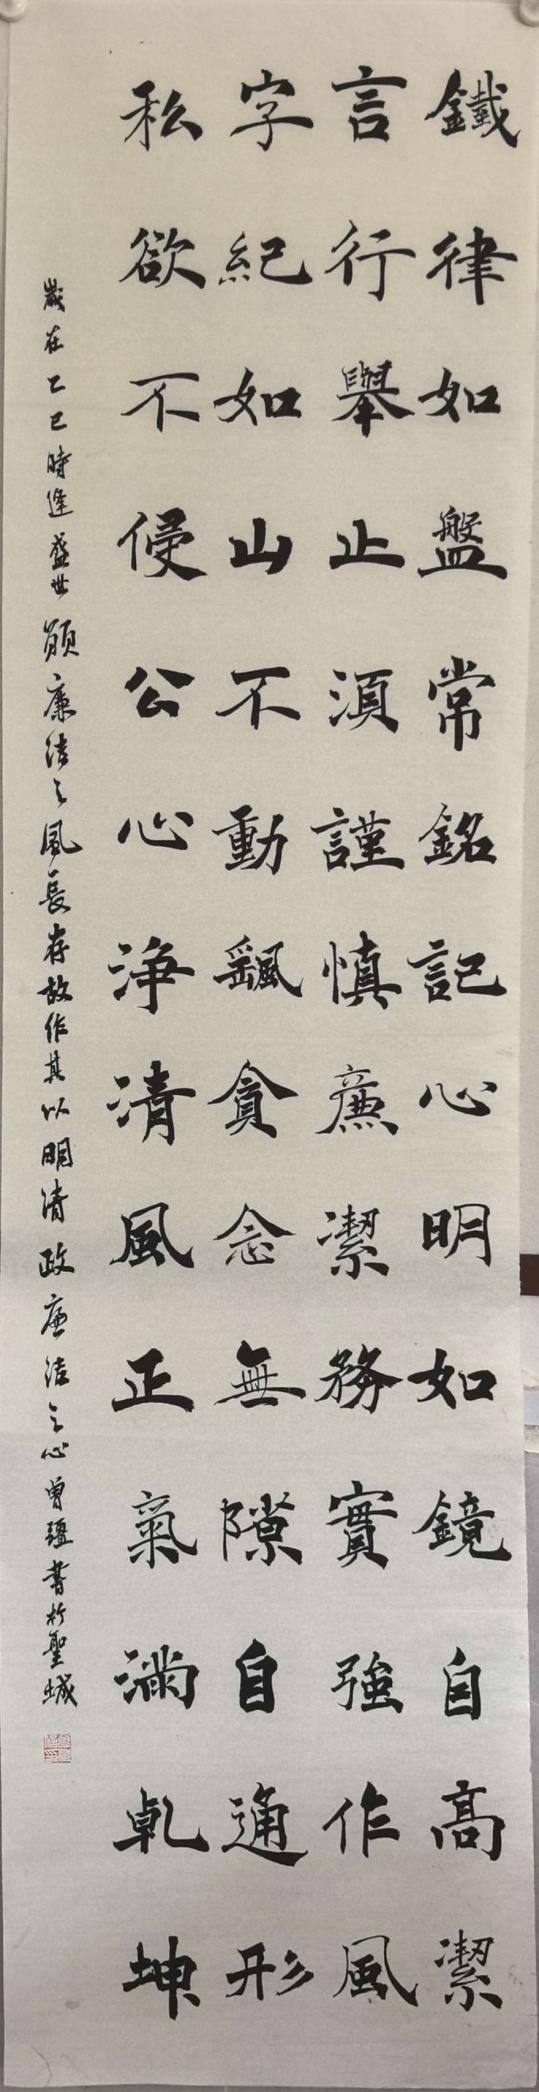 鐵律如盤常銘記心明如鏡自高潔
言行舉止須謹慎廉潔務實強作風
字紀如山不動飄貪念無隙自通形
私欲不侵公心淨清風正氣滿乾坤
歲在乙巳時逢盛世願廉洁之風長存故作其以明清政廉洁之心曾疆書於聖城